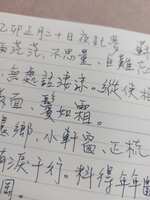 乙卯正月二十日夜記夢
茫茫、不思量、自難忘
無處話淒涼。縱使相
面、鬢如霜。
鄉、小軒窗、正梳
有淚千行。料得年年
岡。